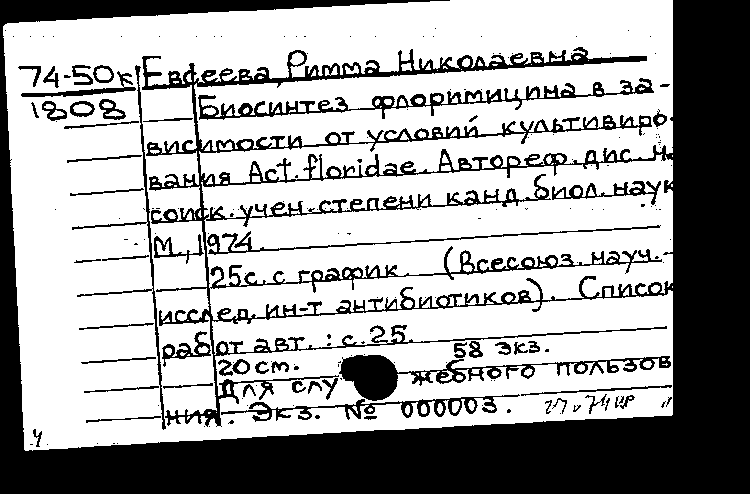 74-50к Евсеева, Римма Николаевна
1808 Биосинтез флоримицина в за-
висимости от условий культивиро-
вания Act. floridae. Автореф. дис. на
соиск. учен. степени канд. биол. наук
М., 1974.
25с. с график. (Всесоюз. науч.-
исслед. ин-т антибиотиков). Список
работ авт.: с. 25.
20 см. 58 экз.
Для служебного пользов
ния. Экз. № 000003.